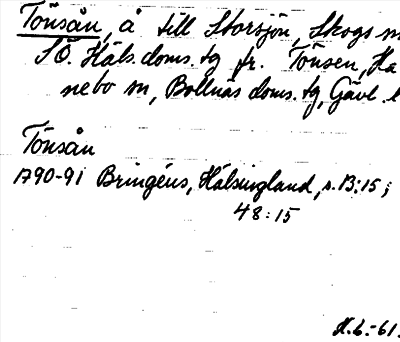 Tönsån, å till Storsjön, Skogs
SÖ. Häls. doms. tg fr. Tönsen, Ha
nebo sn, Bollnäs doms. tg, Gävl. l
Tönsån
1790-91 Bringéus, Hälsingland, s. B:15;
48:15
H.L.-61.